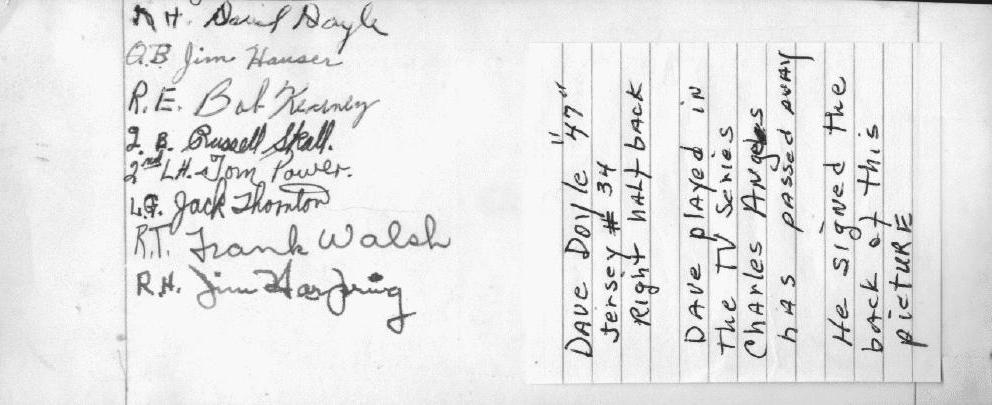 R H. David Doyle
Q.B Jim Hauser
R.E. Bob Kearney
Q. B. Russell Skall.
2nd L.H. Tom Power.
L.G. Jack Thornton
R.T. Frank Walsh
R.H. Jim Harjring
DAVE DOYLE "47"
Jersey # 34
Right HALF BACK
DAVE played in
the TV Series
Charles Angeles
has passed away
He signed the
back of this
picture